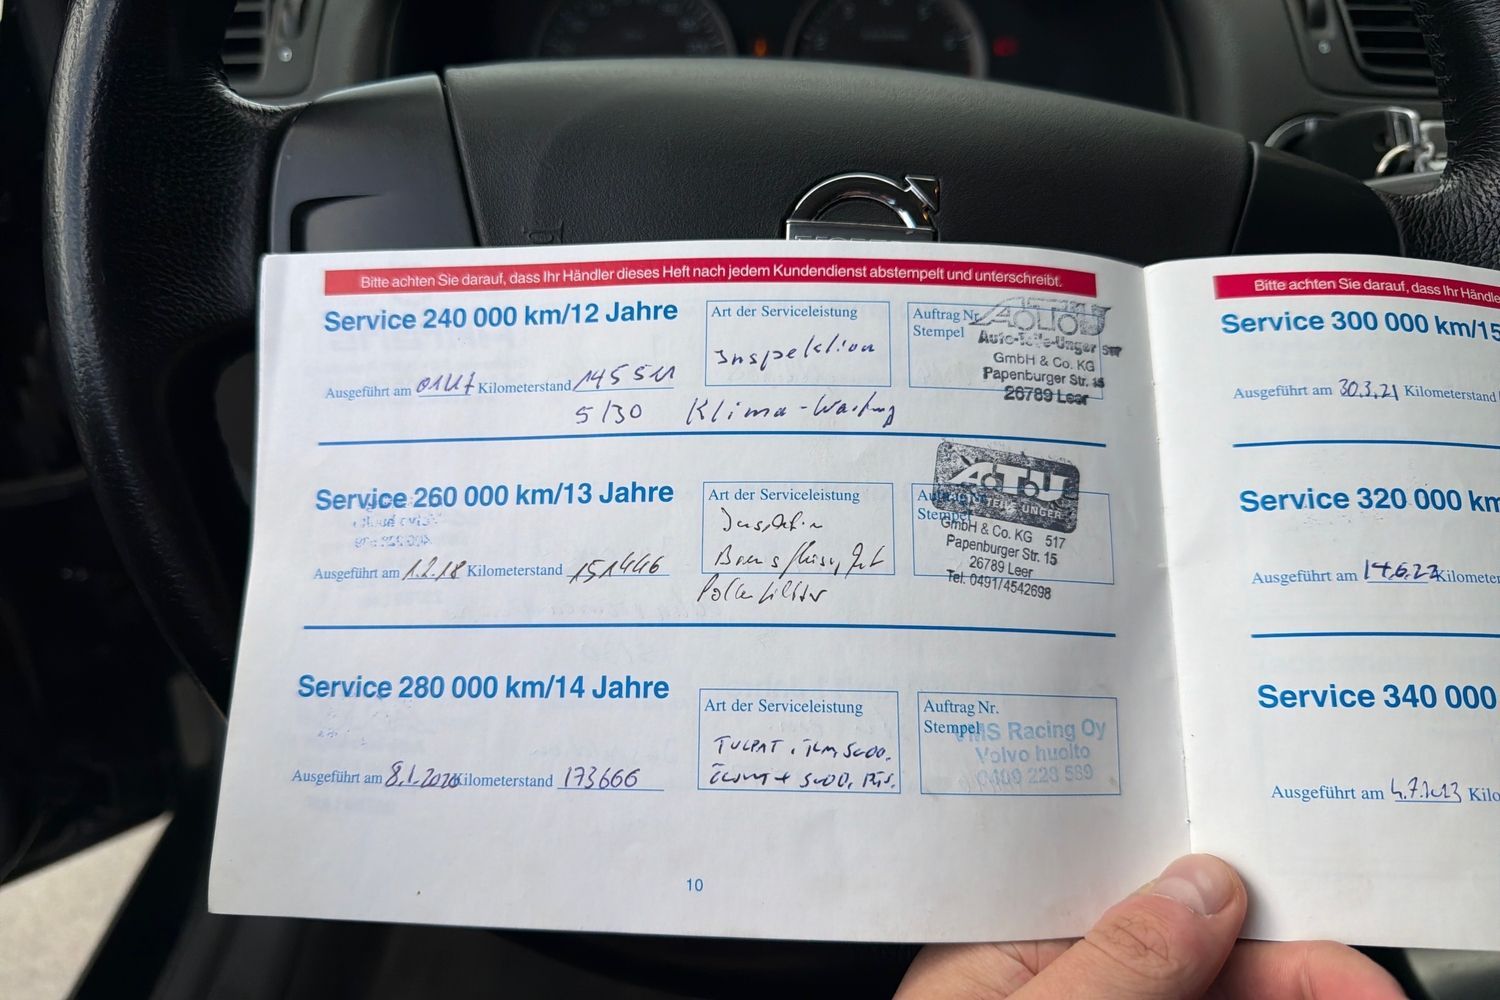 Bitte achten Sie darauf, dass Ihr Händler dieses Heft nach jedem Kundendienst abstempelt und unterschreibt.
Service 240 000 km/12 Jahre
Art der Serviceleistung
Inspektion
Auftrag Nr.
Stempel
Auto-Teile-Unger
GmbH & Co. KG
Papenburger Str.
26789 Leer
Ausgeführt am Kilometerstand 145 511
5/30 Klima-Wartung
Service 260 000 km/13 Jahre
Art der Serviceleistung
Pollenfilter
Auftrag Nr.
Stempel
UNGER
GmbH & Co. KG 517
Papenburger Str. 15
26789 Leer
Tel. 0491/4542698
Ausgeführt am 1.2.18 Kilometerstand 151446
Service 280 000 km/14 Jahre
Art der Serviceleistung
Auftrag Nr.
Stempel
VMS Racing Oy
Volvo huolto
0409 228 589
Ausgeführt am 8.1.2020 Kilometerstand 173666
10
Bitte achten Sie darauf, dass Ihr Händle
Service 300 000 km/15
Ausgeführt am 30.3.21 Kilometerstand
Service 320 000 km
Ausgeführt am 14.6.22 Kilometer
Service 340 000
Ausgeführt am 4.7.2023 Kilo